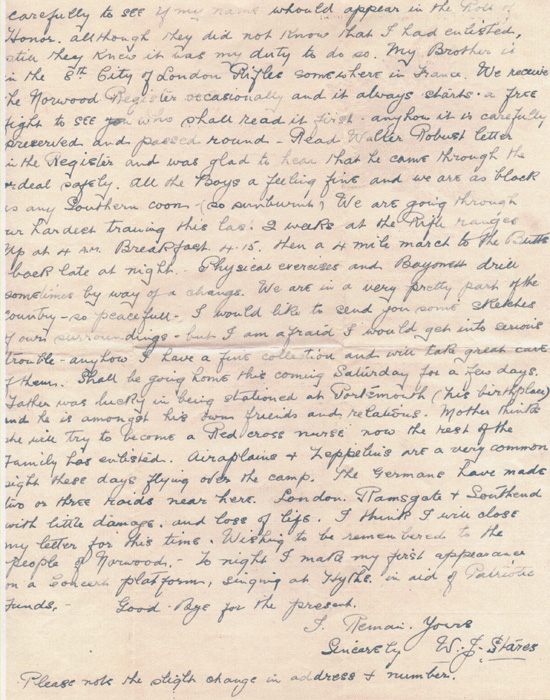 carefully to see if my name whould appear in the Roll of
Honor. although they did not know that I had enlisted,
still they knew it was my duty to do so. My Brother is
in the 8th City of London Rifles somewhere in France. We receive
he Norwood Register occasionally and it always starts a free
fight to see you who shall read it first - anyhow it is carefully
preserved and passed round - Read Walter Robust letter
in the Register and was glad to hear that he came through the
rdeal safely. All the Boys a feeling fine and we are as black
as any Southern coon (so sunburnt) We are going through
ur hardest training this las. 2 weeks at the Rifle ranges
up at 4 AM. Breakfast 4.15. then a 4 mile march to the Butts
- back late at night. Physical exercises and Bayonett drill
sometimes by way of a change. We are in a very pretty part of the
country - so peacefull - I would like to send you some sketches
of our surroundings - but I am afraid I would get into serious
trouble - anyhow I have a fine collection and will take great care
of them. Shall be going home this coming Saturday for a few days.
Father was lucky in being stationed at Portsmouth (his birthplace)
and he is amongst his own friends and relations. Mother thinks
she will try to become a Red cross nurse now the rest of the
Family has enlisted. Airaplains & Zeppelins are a very common
sight these days flying over the camp. The Germans have made
two or three raids near here. London. Ramsgate & Southend
with little damage. and loss of life. I think I will close
my letter for this time. Wishing to be remembered to the
people of Norwood. - To night I make my first appearance
on a Concert platform, singing at Hythe. in aid of Patriotic
Funds. - Good-Bye for the present.
I. Remain. Yours
Sincerely W. J. Stares
Please note the slight change in address & number.